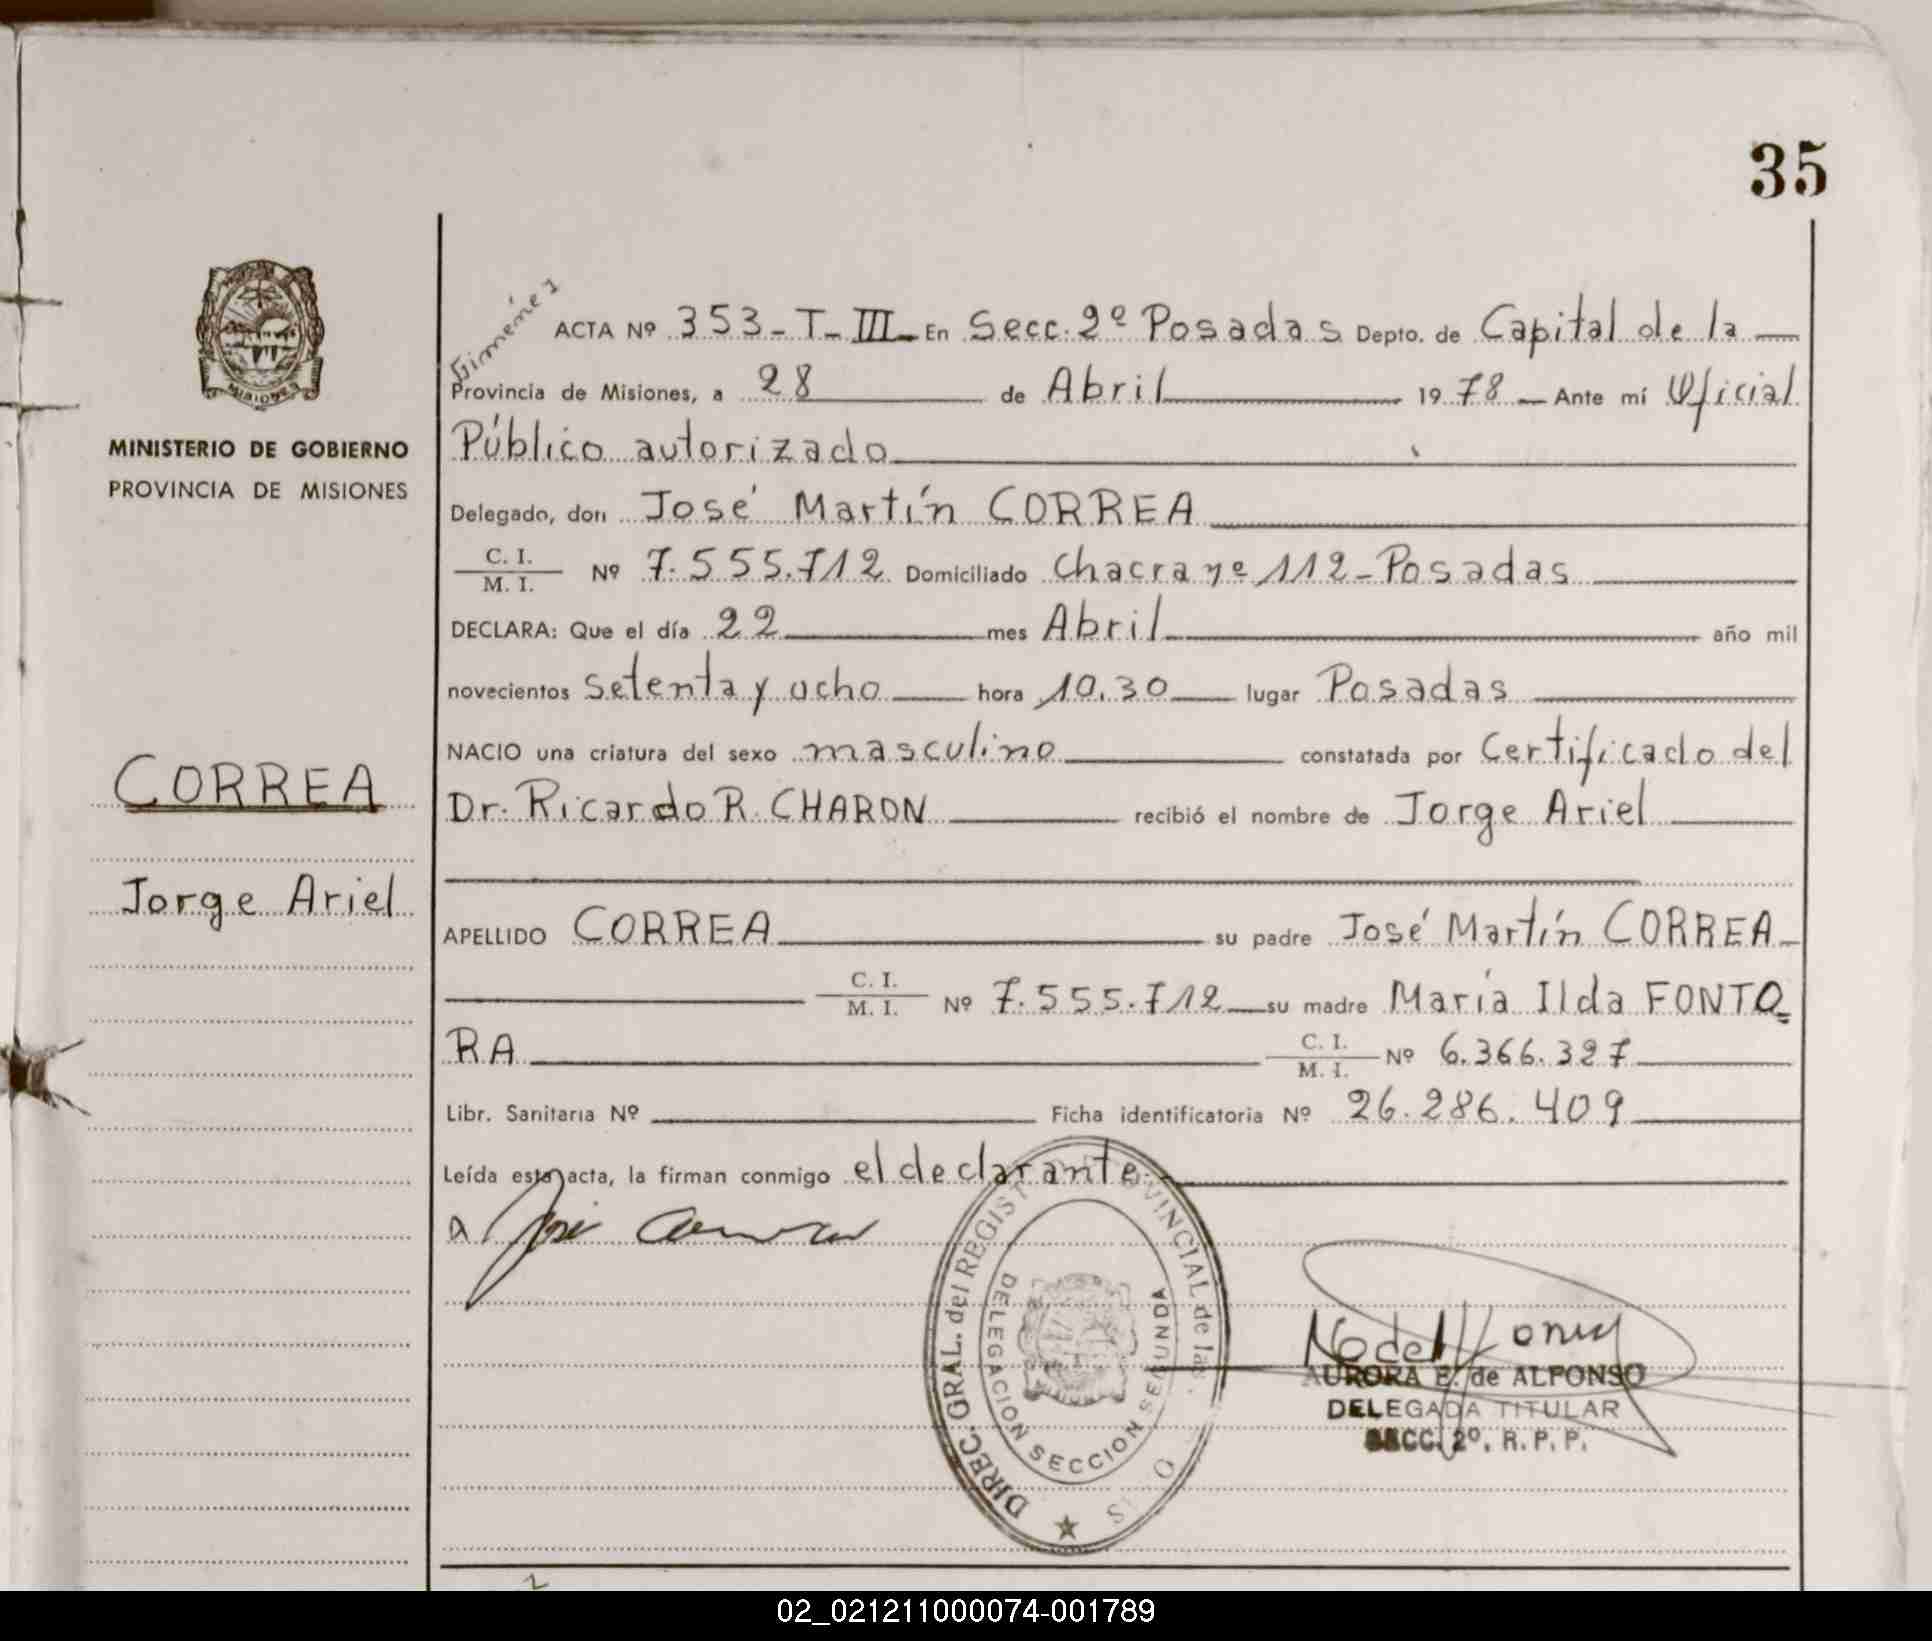 35
MINISTERIO DE GOBIERNO
PROVINCIA DE MISIONES
CORREA
Jorge Ariel
Giménez
ACTA Nº 353-T-III- En Secc. 2º Posadas Depto. de Capital de la
Provincia de Misiones, a 28 de Abril 1978 Ante mí Oficial
Público autorizado
Delegado, don José Martín CORREA
C. I.
M. I.
Nº 7.555.712 Domiciliado Chacra Nº 112-Posadas
DECLARA: Que el día 22 mes Abril año mil
novecientos setenta y ocho hora 10.30 lugar Posadas
NACIO una criatura del sexo masculino constatada por Certificado del
Dr. Ricardo R. CHARON recibió el nombre de Jorge Ariel
APELLIDO CORREA su padre José Martín CORREA
C. I.
M. I.
Nº 7.555.712 su madre María Ilda FONTO=
RA C. I.
M. I.
Nº 6.366.327
Libr. Sanitaria Nº Ficha identificatoria Nº 26.286.409
Leída esta acta, la firman conmigo el declarante.
a José Correa
DIREC. GRAL. del REGIST PROVINCIAL de las
DELEGACION SECCION SEGUNDA
AURORA E. de ALFONSO
DELEGADA TITULAR
SECC. 2º. R. P. P.
02_021211000074-001789